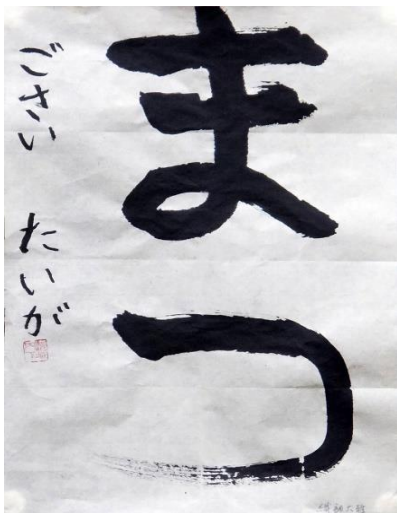 まつ
ごさい たいが